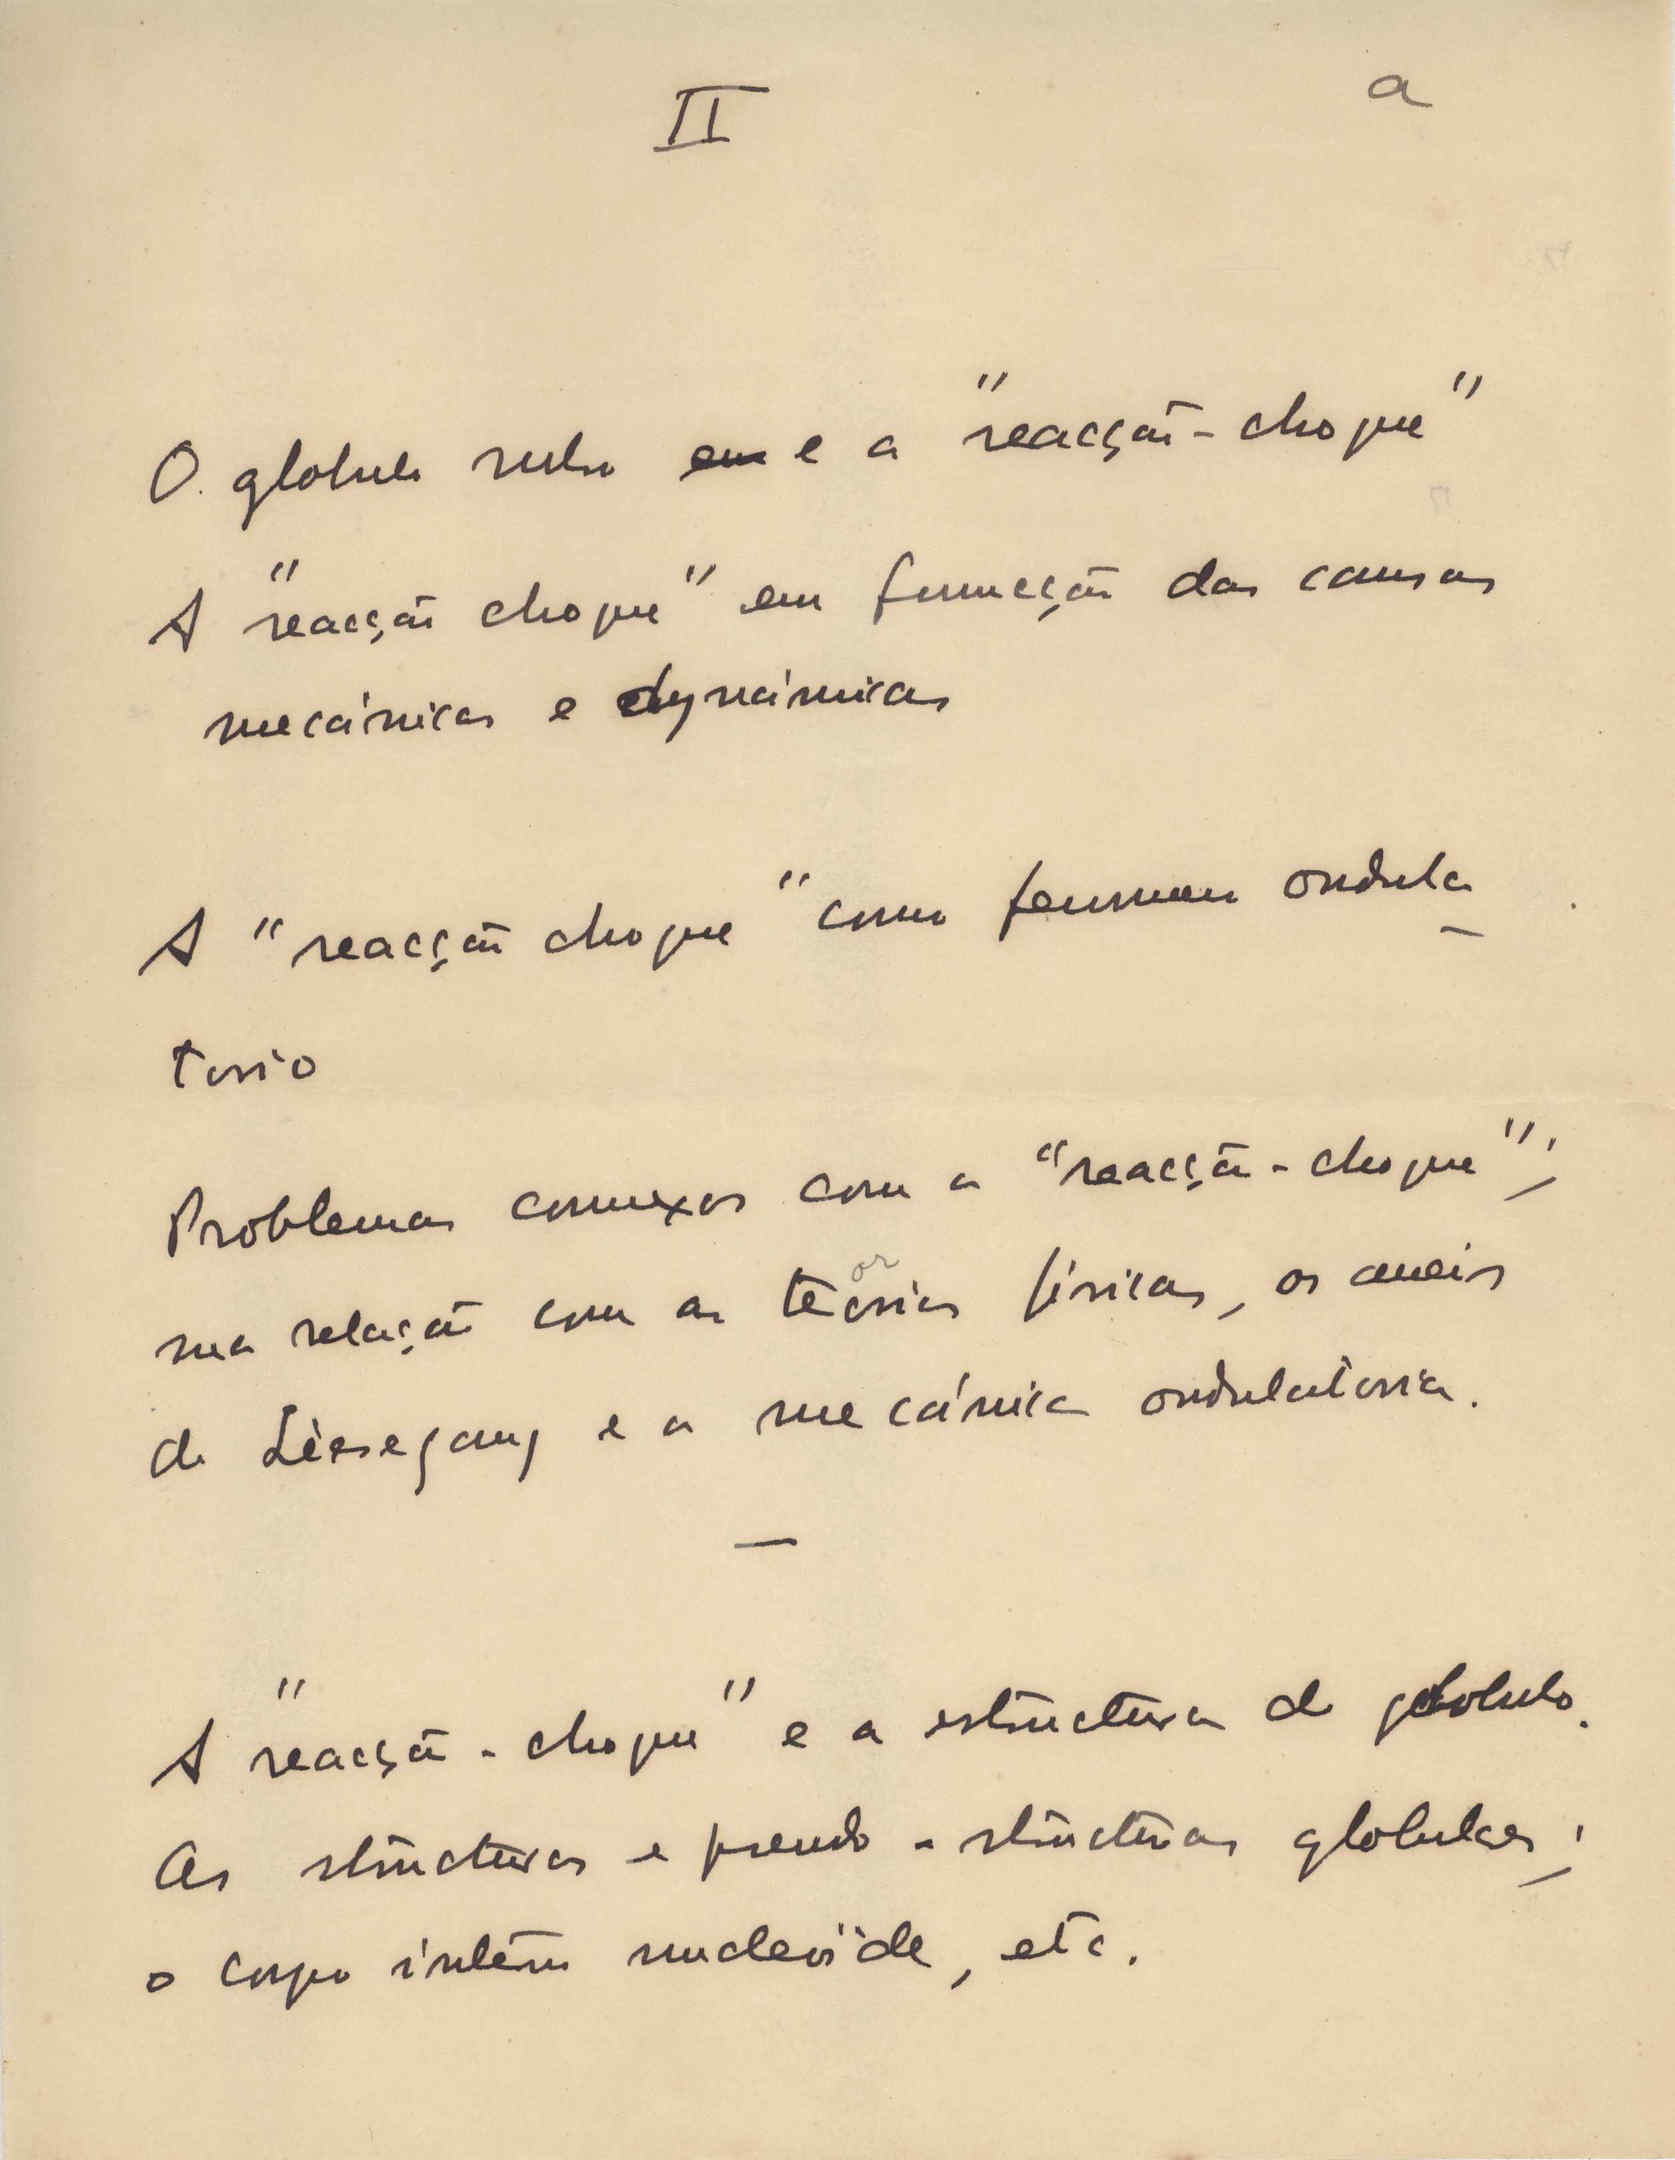 II a
O globulo rubro em e a "reacção-choque"
A "reacção choque" em funcção das causas
mecánicas e dynámicas
A "reacção choque" como fenomeno ondula-
torio
Problemas connexos com a "reacção-choque";
sua relação com as teorias físicas, os aneis
de Liesegang e a mecánica ondulatoria.
—
A "reacção-choque" e a estructura do globulo.
As structuras e pseudo-structuras globulares;
o corpo interno nucleoïde, etc.